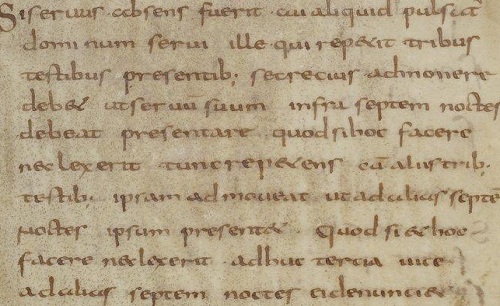 Siseruus absens fuerit cui aliquid pulsat
dominum serui ille qui repetit tribus
testibus presentib; secrecius admonere
debet ut seruu suum infra septem noctes
debeat presentare quod si hoc facere
neclexerit tunc repetens cu alus trib;
testib; ipsam admoueat ut ad alias septe
noctes ipsum presentet Quod si et hoc
facere neclexerit adhuc tertia uice
ad alias septem noctes ei denunciet